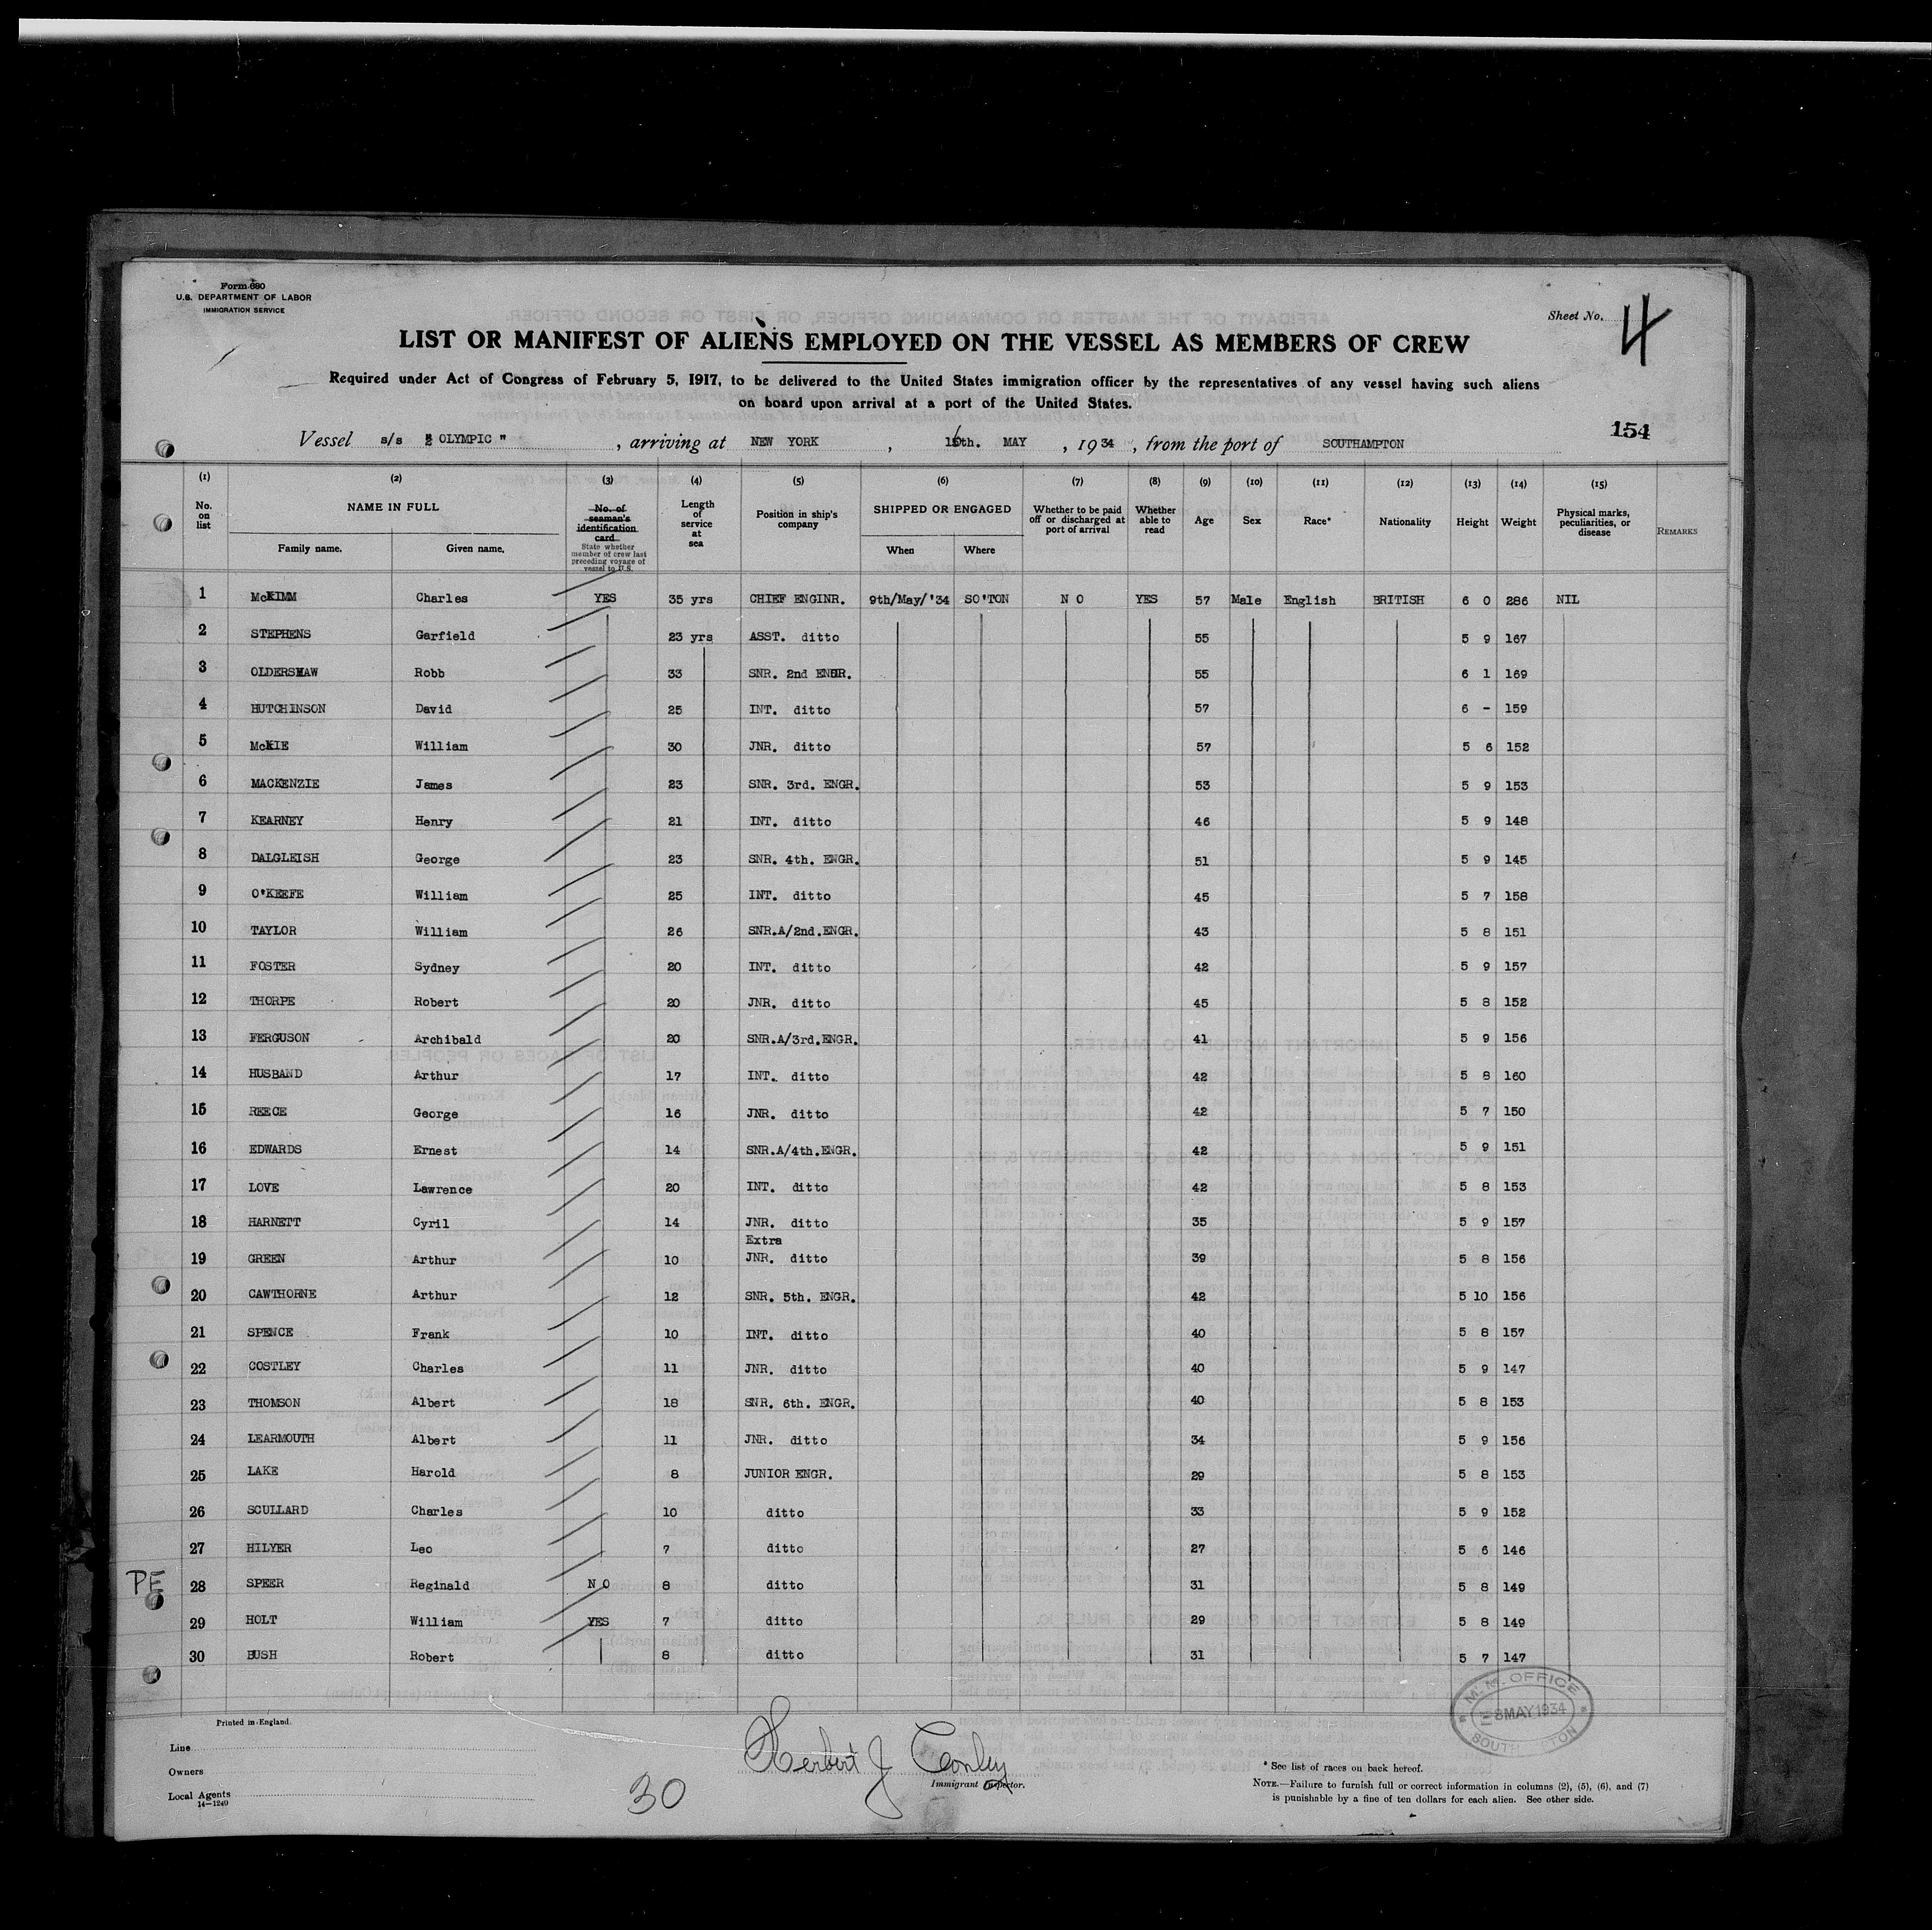 Form 680
U.S. DEPARTMENT OF LABOR
IMMIGRATION SERVICE
Sheet No. 4
LIST OR MANIFEST OF ALIENS EMPLOYED ON THE VESSEL AS MEMBERS OF CREW
Required under Act of Congress of February 5, 1917, to be delivered to the United States immigration officer by the representatives of any vessel having such aliens
on board upon arrival at a port of the United States.
154
Vessel s/s " OLYMPIC " , arriving at NEW YORK , 16th. MAY , 1934 , from the port of SOUTHAMPTON
(1) (2) (3) (4) (5) (6) (7) (8) (9) (10) (11) (12) (13) (14) (15)
No. on list NAME IN FULL Family name. Given name. No. of seaman's identification card State whether member of crew last preceding voyage of vessel to U.S. Length of service at sea Position in ship's company SHIPPED OR ENGAGED When Where Whether to be paid off or discharged at port of arrival Whether able to read Age Sex Race* Nationality Height Weight Physical marks, peculiarities, or disease REMARKS
1 McKIMM Charles YES 35 yrs CHIEF ENGINR. 9th/May/'34 SO'TON N O YES 57 Male English BRITISH 6 0 286 NIL
2 STEPHENS Garfield 23 yrs ASST. ditto 55 5 9 167
3 OLDERSHAW Robb 33 SNR. 2nd ENGR. 55 6 1 169
4 HUTCHINSON David 25 INT. ditto 57 6 - 159
5 McKIE William 30 JNR. ditto 57 5 6 152
6 MACKENZIE James 23 SNR. 3rd. ENGR. 53 5 9 153
7 KEARNEY Henry 21 INT. ditto 46 5 9 148
8 DALGLEISH George 23 SNR. 4th. ENGR. 51 5 9 145
9 O'KEEFE William 25 INT. ditto 45 5 7 158
10 TAYLOR William 26 SNR.A/2nd.ENGR. 43 5 8 151
11 FOSTER Sydney 20 INT. ditto 42 5 9 157
12 THORPE Robert 20 JNR. ditto 45 5 8 152
13 FERGUSON Archibald 20 SNR.A/3rd.ENGR. 41 5 9 156
14 HUSBAND Arthur 17 INT. ditto 42 5 8 160
15 REECE George 16 JNR. ditto 42 5 7 150
16 EDWARDS Ernest 14 SNR.A/4th.ENGR. 42 5 9 151
17 LOVE Lawrence 20 INT. ditto 42 5 8 153
18 HARNETT Cyril 14 JNR. ditto 35 5 9 157
Extra
19 GREEN Arthur 10 JNR. ditto 39 5 8 156
20 CAWTHORNE Arthur 12 SNR. 5th. ENGR. 42 5 10 156
21 SPENCE Frank 10 INT. ditto 40 5 8 157
22 COSTLEY Charles 11 JNR. ditto 40 5 9 147
23 THOMSON Albert 18 SNR. 6th. ENGR. 40 5 8 153
24 LEARMOUTH Albert 11 JNR. ditto 34 5 9 156
25 LAKE Harold 8 JUNIOR ENGR. 29 5 8 153
26 SCULLARD Charles 10 ditto 33 5 9 152
27 HILYER Leo 7 ditto 27 5 6 146
PE 28 SPEER Reginald N O 8 ditto 31 5 8 149
29 HOLT William YES 7 ditto 29 5 8 149
30 BUSH Robert 8 ditto 31 5 7 147
M.M. OFFICE
8 MAY 1934
Printed in England.
Line
Owners
Local Agents
14—1240
30
Herbert J Conley
Immigrant Inspector.
* See list of races on back hereof.
NOTE.—Failure to furnish full or correct information in columns (2), (5), (6), and (7)
is punishable by a fine of ten dollars for each alien. See other side.